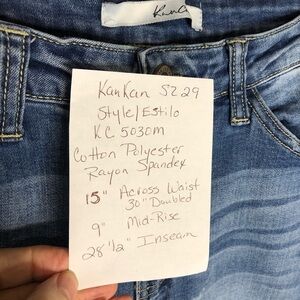 KanCan
KanKan SZ 29
Style/Estilo
KC 5030m
Cotton Polyester
Rayon Spandex
15" Across Waist
30" Doubled
9" Mid-Rise
28 1/2" Inseam